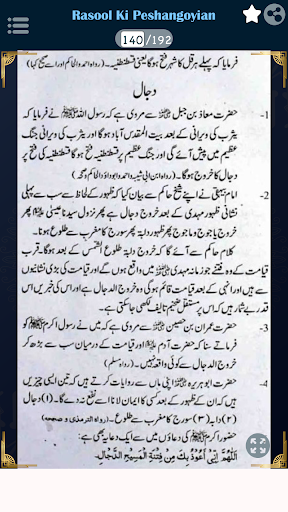 Rasool Ki Peshangoyian
140/192
فرمایا کہ پہلے ہرقل کا شہر فتح ہوگا یعنی قسطنطنیہ۔ (رواہ احمد والحاکم اوراسے صحیح کہا)
دجال
1- حضرت معاذ بن جبل ؓ سے مروی ہے کہ رسول اللہ ﷺ نے فرمایا کہ
یثرب کی ویرانی کے بعد بیت المقدس آباد ہوگا اور یثرب کی ویرانی جنگ
عظیم میں پیش آئے گی اور جنگ عظیم پر قسطنطنیہ فتح ہوگا اور قسطنطنیہ کی فتح پر
دجال کا خروج ہوگا۔ (رواہ ابن ابی شیبہ واحمد وابوداؤد والحاکم)
2- امام بیہقی نے اپنے شیخ حاکم سے بیان کیا کہ ظہور کے لحاظ سے سب سے پہلی
نشانی ظہور مہدی ہے اس کے بعد خروج دجال ہے پھر نزول سیدنا عیسیٰ پھر
خروج یاجوج وماجوج پھر ظہور دابہ پھر سورج کا مغرب سے طلوع ہونا۔
کلام حاکم سے آئے گا کہ خروج دابہ طلوع الشمس کے بعد ہوگا۔ قرب
قیامت کے وہ فتنے جو زمانہ مہدی میں واقع ہوں گے اور قیامت کی بڑی نشانیوں
سے ہیں اور انہی کے بعد سے وہ قیامت قائم ہوگی وہ خروج الدجال ہے اور یہ واقعات اس
قدر بے شمار ہیں کہ اس پر مستقل ضخیم تالیف لکھی جاسکتی ہے۔
3- حضرت عمران بن حصین ؓ سے مروی ہے کہ میں نے رسول اکرم ﷺ کو
فرماتے سنا کہ حضرت آدم اور قیامت کے درمیان سب سے بڑھ کر
خروج الدجال سے کوئی واقعہ نہیں۔ (رواہ مسلم)
4- حضرت ابوہریرہ ؓ سے روایات کرتے ہیں کہ تین ایسی چیزیں
ہیں کہ ان کے ظہور کے بعد کسی کا ایمان لانا اسے نفع نہ دے گا۔ (۱) دجال
(۲) دابہ (۳) سورج کا مغرب سے طلوع۔ (رواہ الترمذی و صححہ)
حضور اکرم ﷺ کی دعاؤں میں سے ایک دعا یہ بھی ہے:
اَللّٰهُمَّ اِنِّیْ اَعُوْذُ بِكَ مِنْ فِتْنَةِ الْمَسِيْحِ الدَّجَّالِ۔